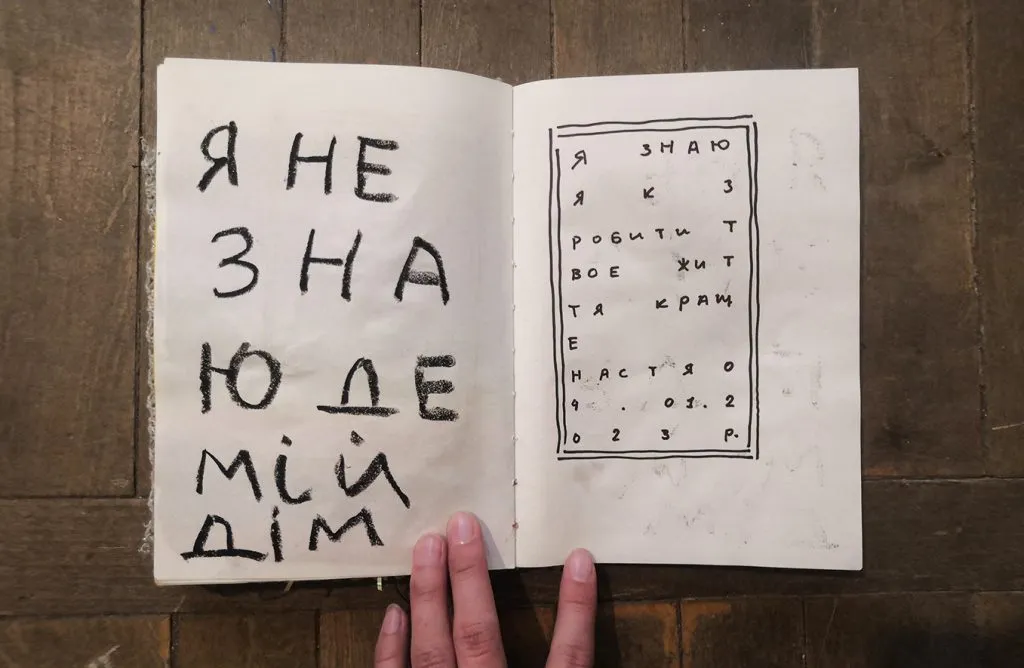 Я НЕ
ЗНА
Ю ДЕ
МІЙ
ДІМ
Я ЗНАЮ
Я К З
РОБИТИ Т
ВОЕ ЖИТ
ТЯ КРАЩ
Е
НАСТЯ 0
4 . 01.2
0 2 3 Р.